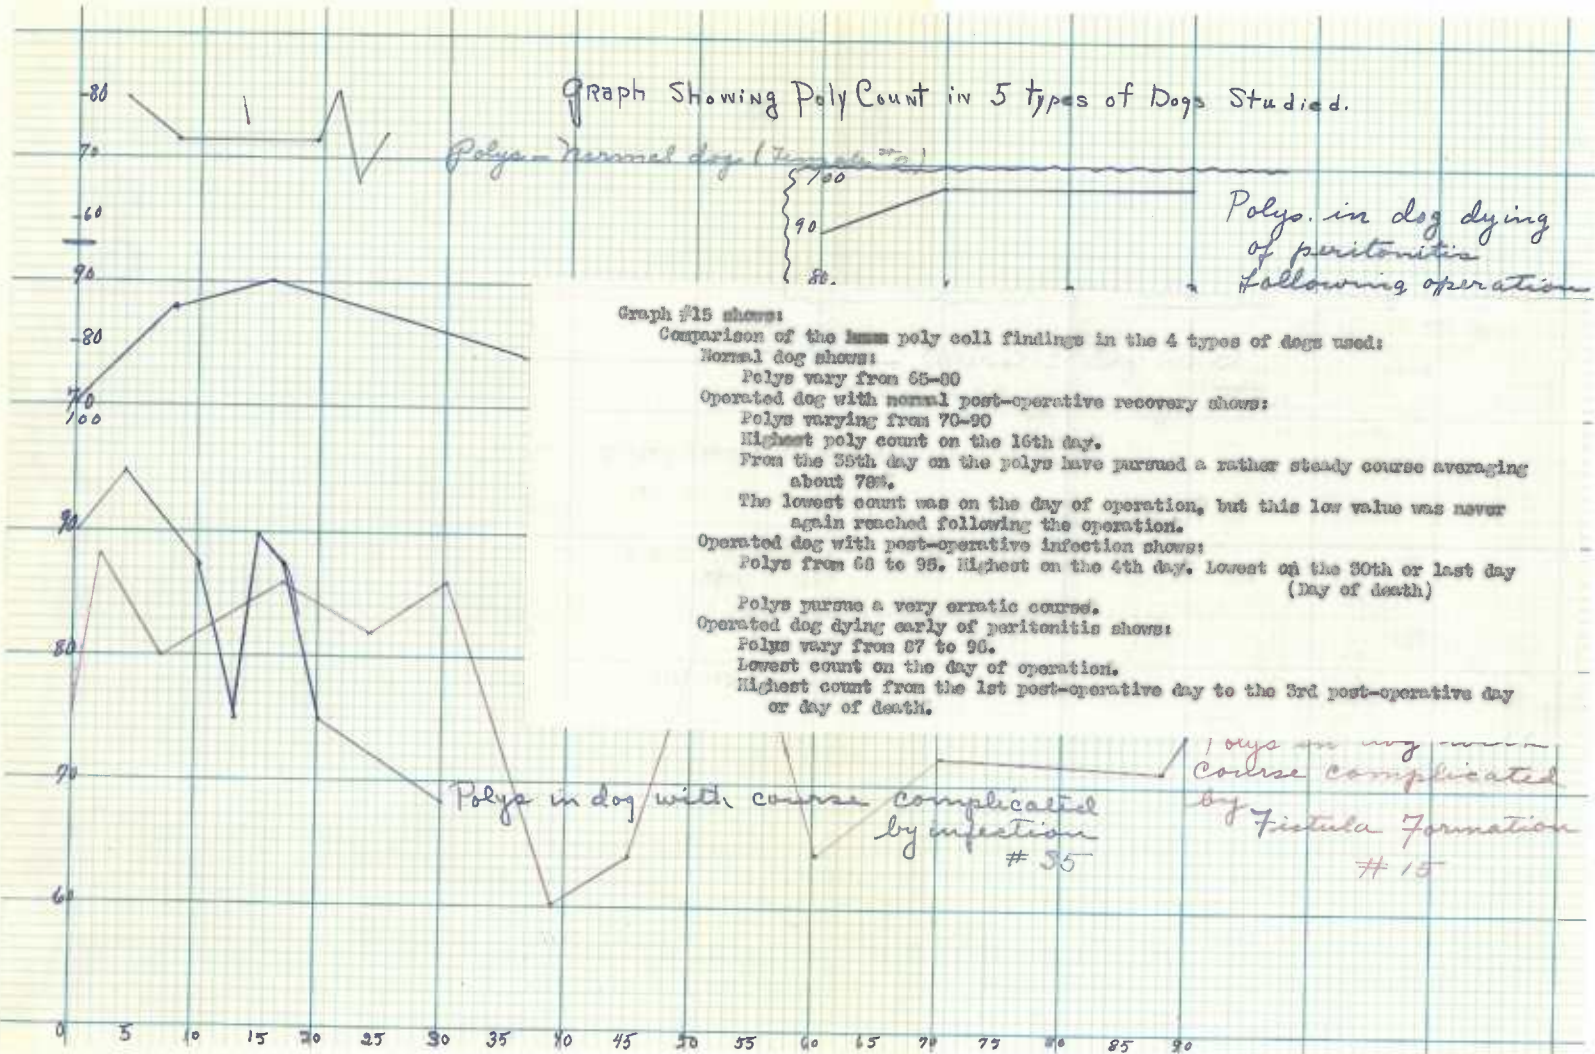 Graph Showing Poly Count in 5 types of Dogs Studied.
80
70
60
Polys - Normal dog (Female #2)
100
90
80.
Polys. in dog dying
of peritonitis
following operation
90
80
70
100
90
80
70
60
Graph #15 shows:
Comparison of the poly cell findings in the 4 types of dogs used:
Normal dog shows:
Polys vary from 65-80
Operated dog with normal post-operative recovery shows:
Polys varying from 70-90
Highest poly count on the 16th day.
From the 35th day on the polys have pursued a rather steady course averaging
about 78%.
The lowest count was on the day of operation, but this low value was never
again reached following the operation.
Operated dog with post-operative infection shows:
Polys from 68 to 95. Highest on the 4th day. Lowest on the 30th or last day
(Day of death)
Polys pursue a very erratic course.
Operated dog dying early of peritonitis shows:
Polys vary from 87 to 96.
Lowest count on the day of operation.
Highest count from the 1st post-operative day to the 3rd post-operative day
or day of death.
Polys in dog with course complicated
by infection
# 35
Polys in dog with
course complicated
by
Fistula Formation
# 15
0 5 10 15 20 25 30 35 40 45 50 55 60 65 70 75 80 85 90